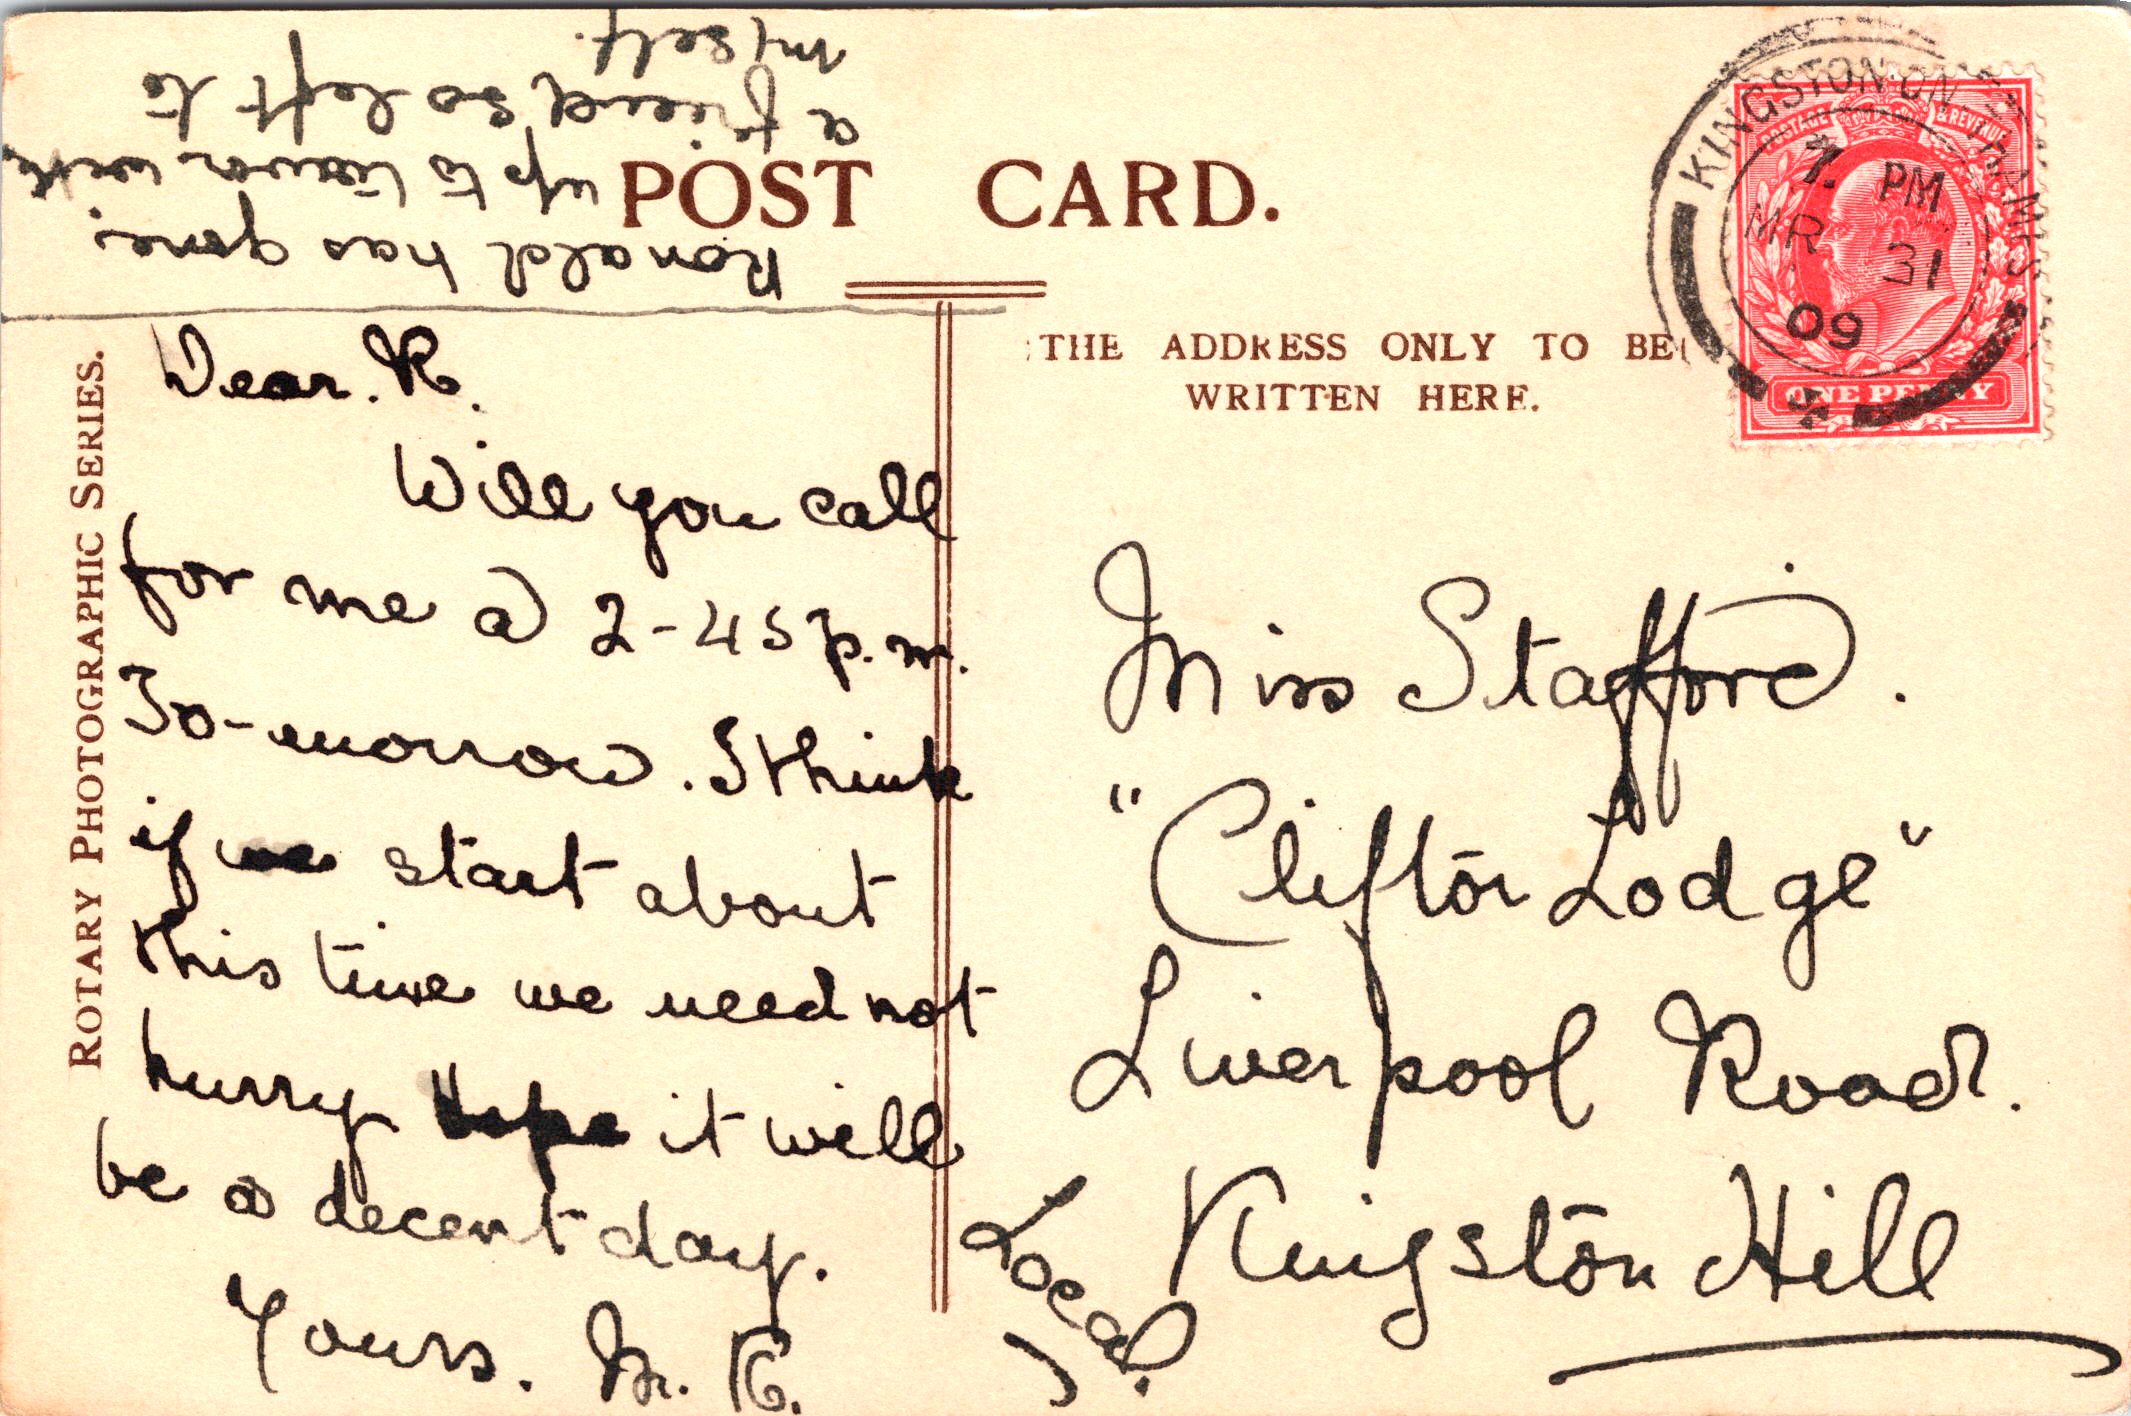 POST CARD.
THE ADDRESS ONLY TO BE
WRITTEN HERE.
ROTARY PHOTOGRAPHIC SERIES.
KINGSTON ON THAMES
7. PM
MR 31
09
POSTAGE & REVENUE
ONE PENNY
Dear. R.
Will you call
for me a) 2-45 p.m.
To-morrow. I think
if we start about
this time we need not
hurry Hope it will
be a decent day.
Yours. M. K.
Ronald has gone.
up to with
a friend so left to
myself.
Miss Stafford.
"Clifton Lodge"
Liverpool Road.
Kingston Hill
Local.